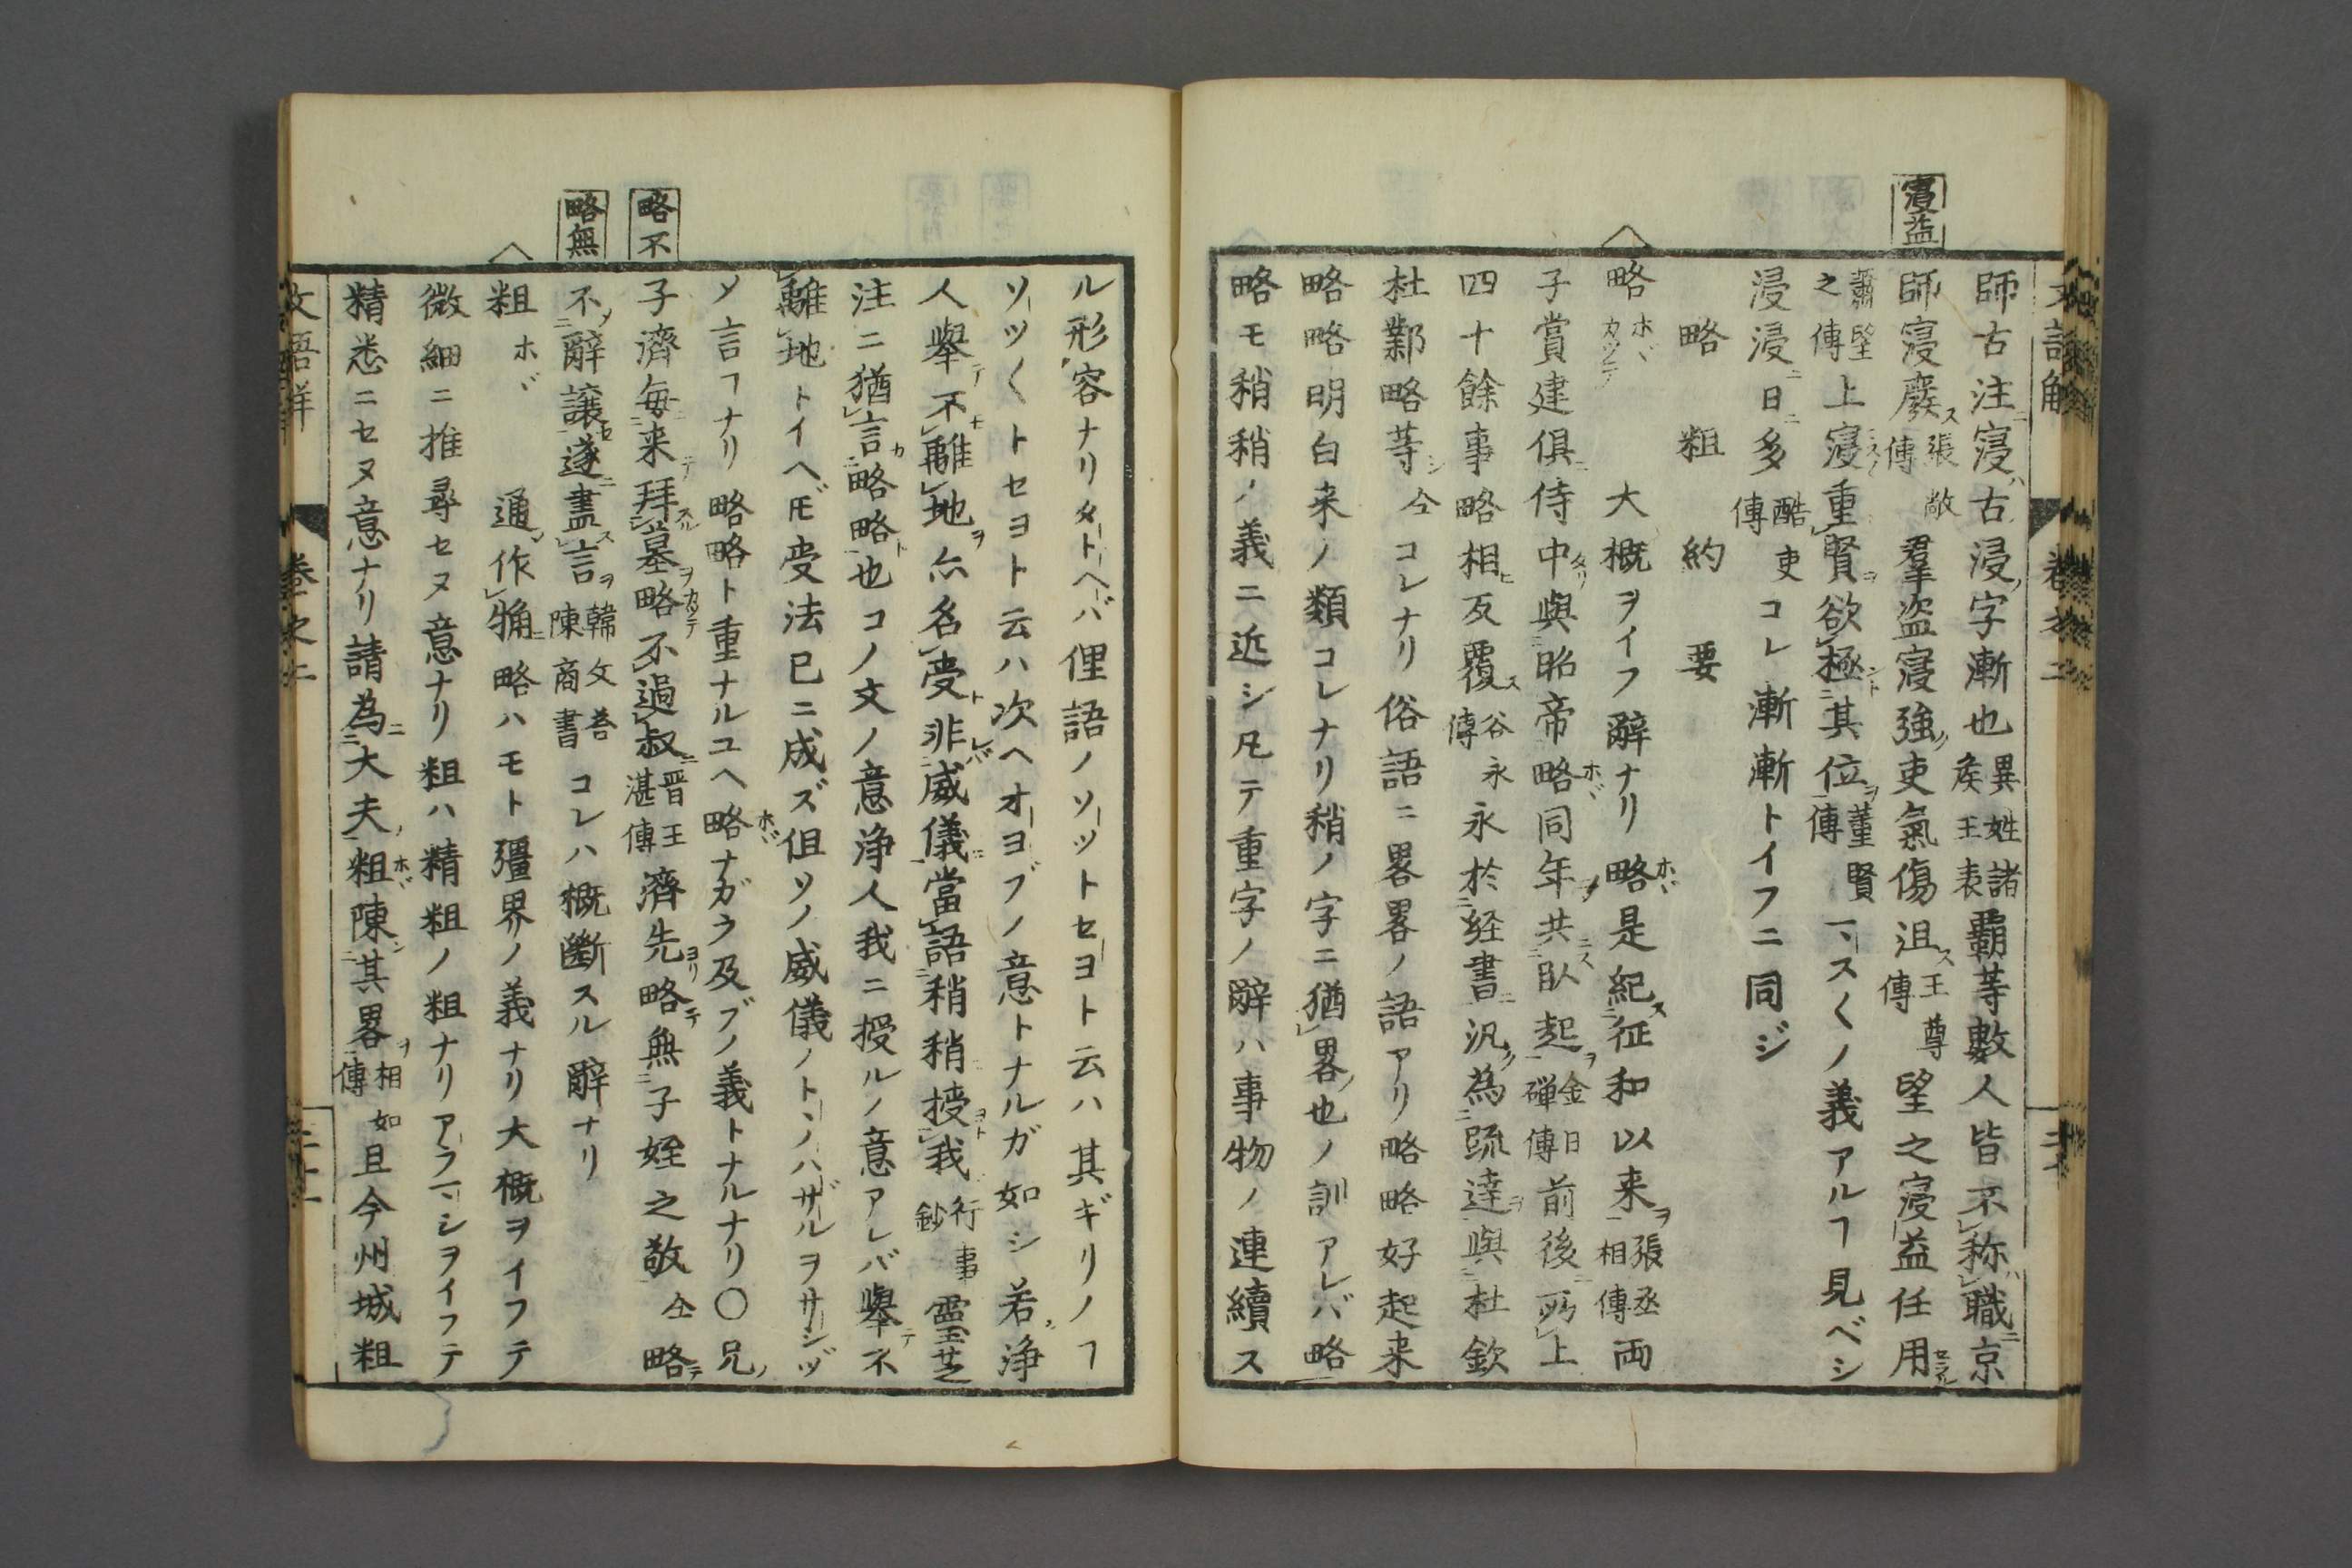 寖益
師古注寖古浸字漸也異姓諸矦王表覇等數人皆不称職京
師寖廢張敞傳羣盗寖強吏氣傷沮王尊傳望之寖益任用
蕭望之傳上寖重賢欲極其位董賢傳一スくノ義アルヿ見ベシ
浸浸日多酷吏傳コレ漸漸トイフニ同ジ
略 粗 約 要
略ホヾカツテ 大概ヲイフ辭ナリ略是紀征和以来張丞相傳両
子賞建俱侍中與昭帝略同年共臥起金日磾傳前後所上
四十餘事略相反覆谷永傳永於経書汎為疏達與杜欽
杜鄴略等仝コレナリ俗語ニ畧畧ノ語アリ略略好起来
略略明白来ノ類コレナリ稍ノ字ニ猶畧也ノ訓アレバ略
略モ稍稍ノ義ニ近シ凡テ重字ノ辭ハ事物ノ連續ス
略不
略無
ル形容ナリタトヘバ俚語ノソツトセヨト云ハ其ギリノヿ
ソツくトセヨト云ハ次ヘオヨブノ意トナルガ如シ若浄
人擧不離地亦名受非威儀當語稍稍授我行事鈔霊芝
注ニ猶言略略也コノ文ノ意浄人我ニ授ルノ意アレバ擧不
離地トイヘ𪜈受法已ニ成ズ但ソノ威儀ノトヽノハザルヲサシヅ
メ言ヿナリ略略ト重ナルユヘ略ナガラ及ブノ義トナルナリ〇兄
子濟毎来拜墓略不過叔晋王湛傳濟先略無子姪之敬仝略
不辭譲遂盡言韓文荅陳商書コレハ概斷スル辭ナリ
粗ホヾ 通作觕略ハモト彊界ノ義ナリ大概ヲイフテ
微細ニ推尋セヌ意ナリ粗ハ精粗ノ粗ナリアラマシヲイフテ
精悉ニセヌ意ナリ請為大夫粗陳其畧相如傳且今州城粗